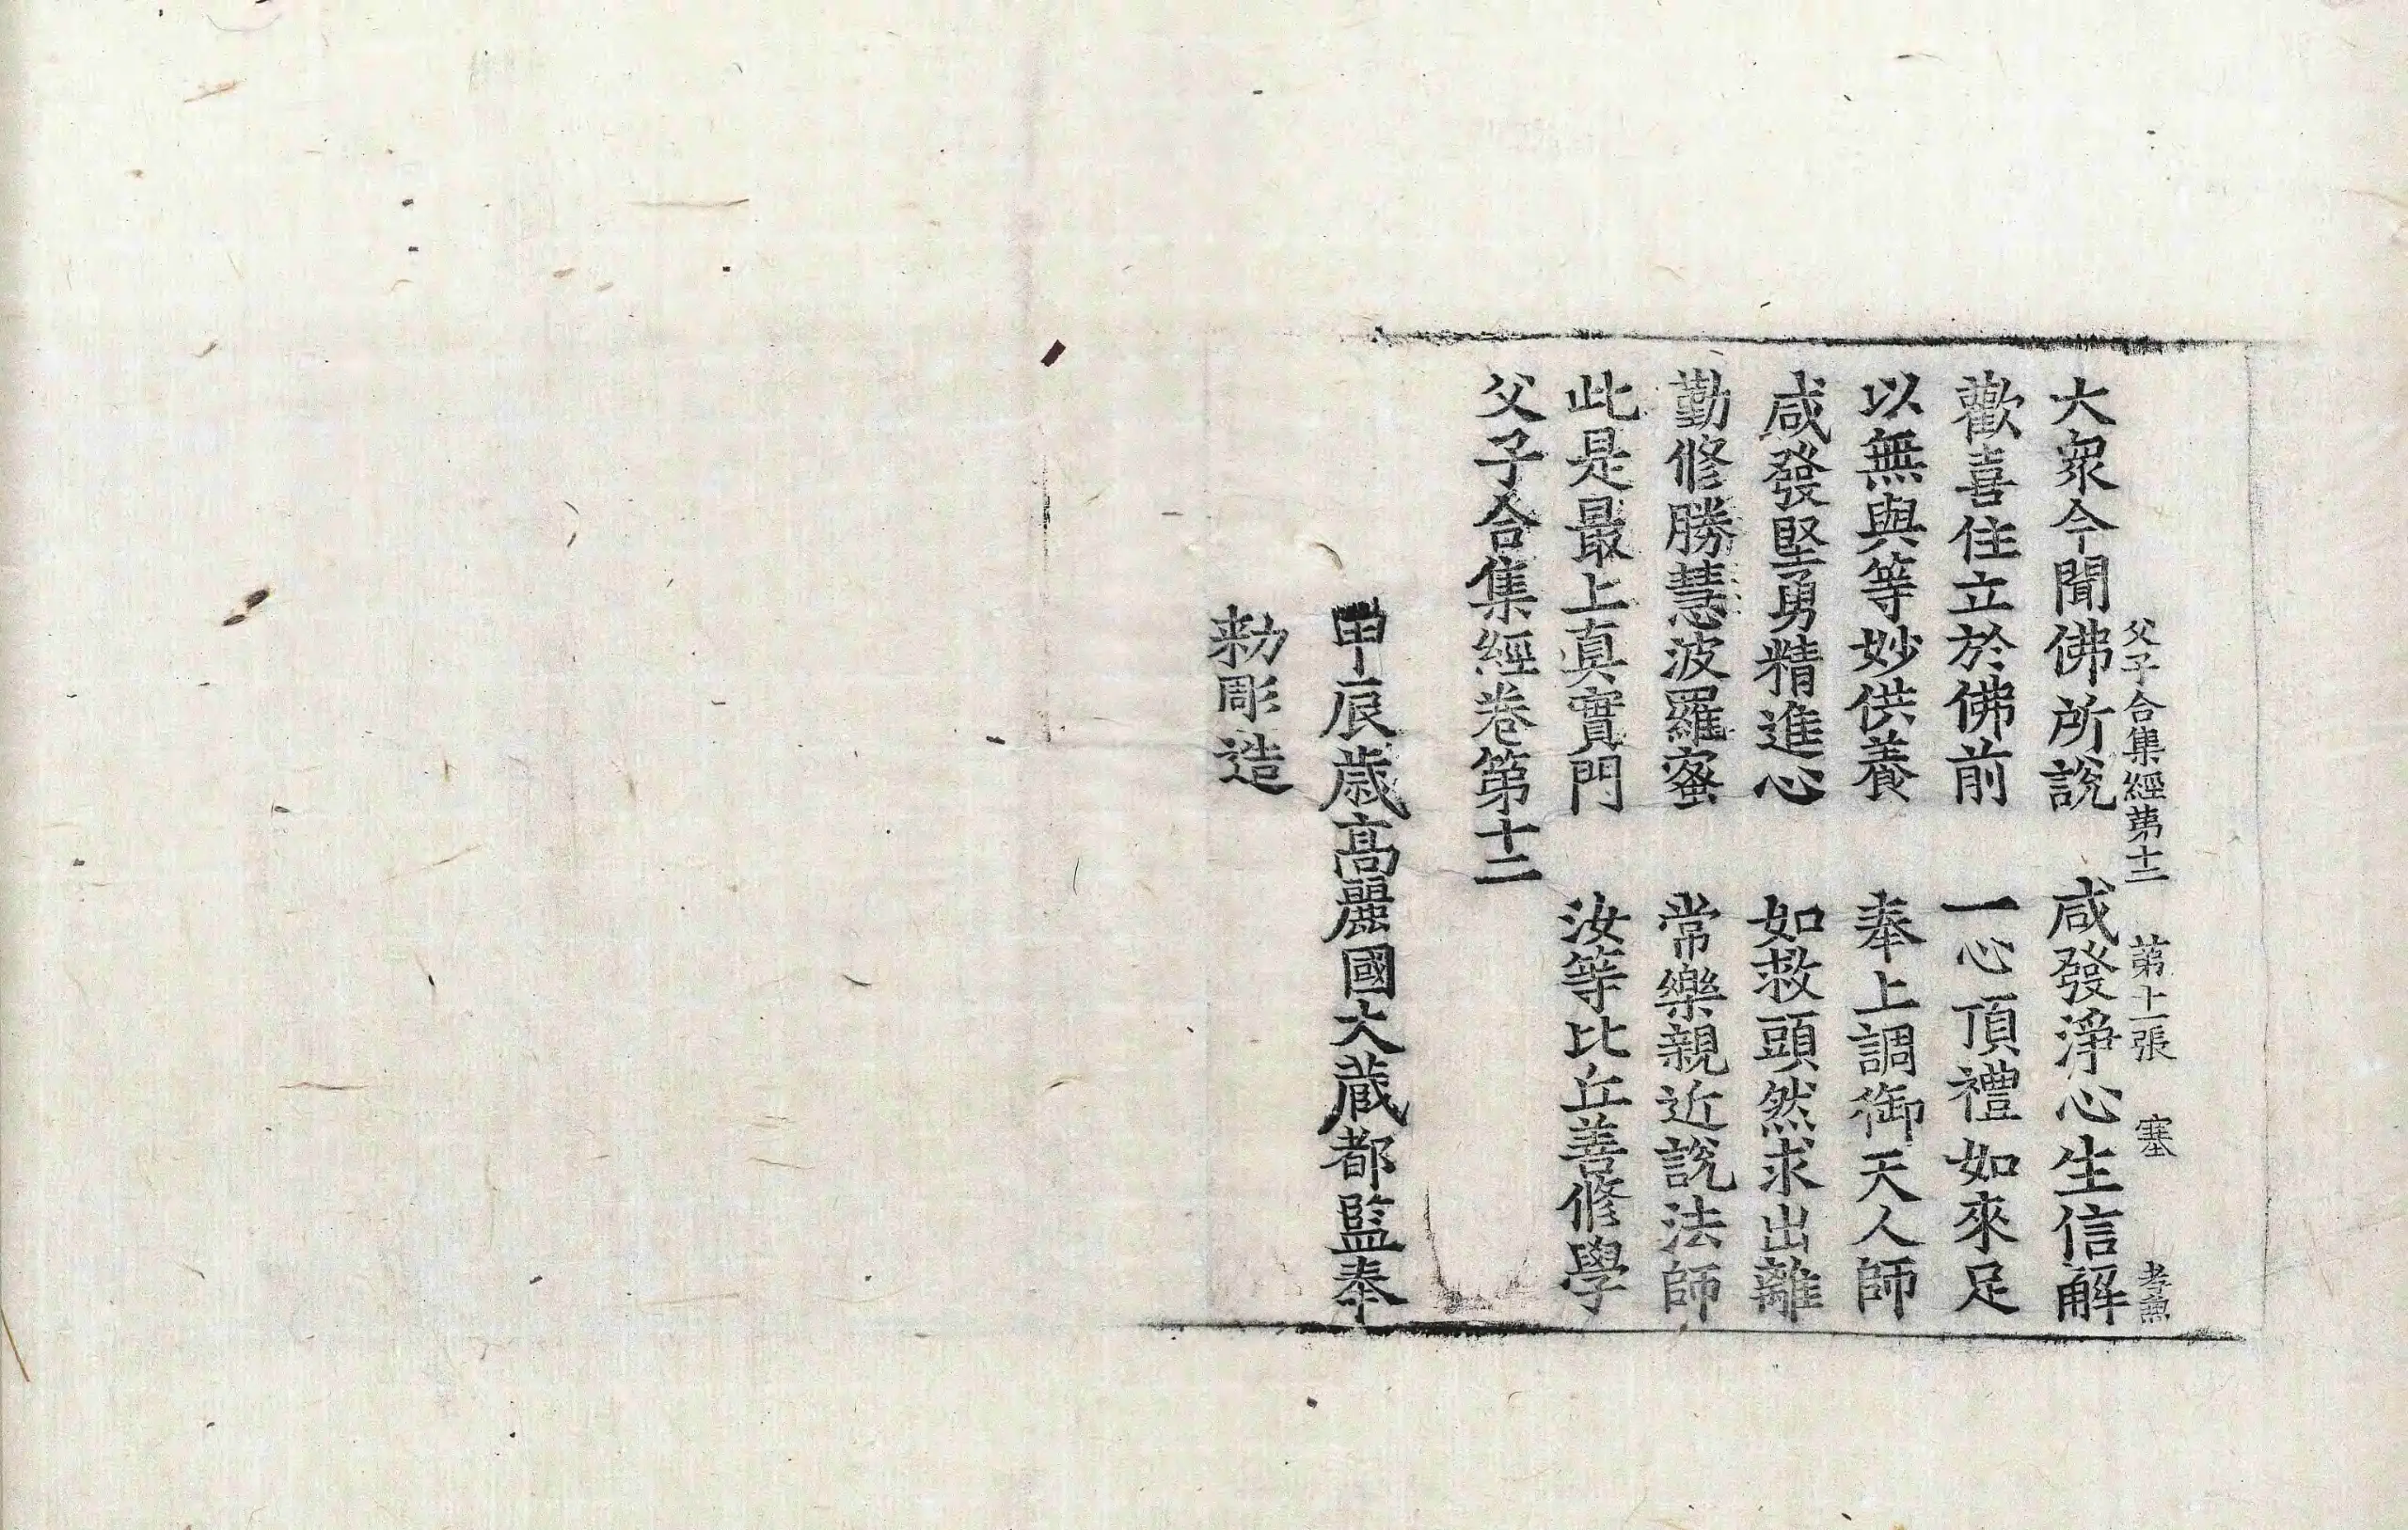 父子合集經第十二 第十一張 塞 孝兼
大衆今聞佛所說 咸發淨心生信解
歡喜住立於佛前 一心頂禮如來足
以無與等妙供養 奉上調御天人師
咸發堅勇精進心 如救頭然求出離
勤修勝慧波羅蜜 常樂親近說法師
此是最上真實門 汝等比丘善修學
父子合集經卷第十二
甲辰歲高麗國大藏都監奉
勑彫造